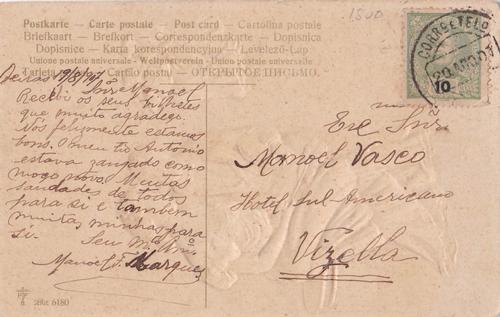 Postkarte – Carte postale – Post card – Cartolina postale
Briefkaart – Brefkort – Correspondenzkarte – Dopisnica
Dopisnice – Karta korespondencyjna – Levelező-Lap
Unione postale universale – Weltpostverein – Union postale universelle
Tarjeta Cartão postal – ОТКРЫТОЕ ПИСЬМО.
1500
CORREGEDO
10
19/8/907
Snr Manoel
Recebi os seus bilhetes
que muito agradeço.
Nós felizmente estamos
bons. O meu tio Antonio
estava zangado como
moço novo. Muitas
saudades de todos
para si e tambem
muitas, minhas para
si. Seu mto Amo
Manoel F. Marques
Exc Snr
Manoel Vasco
Hotel Sul-Americano
Vizella
28t 6180